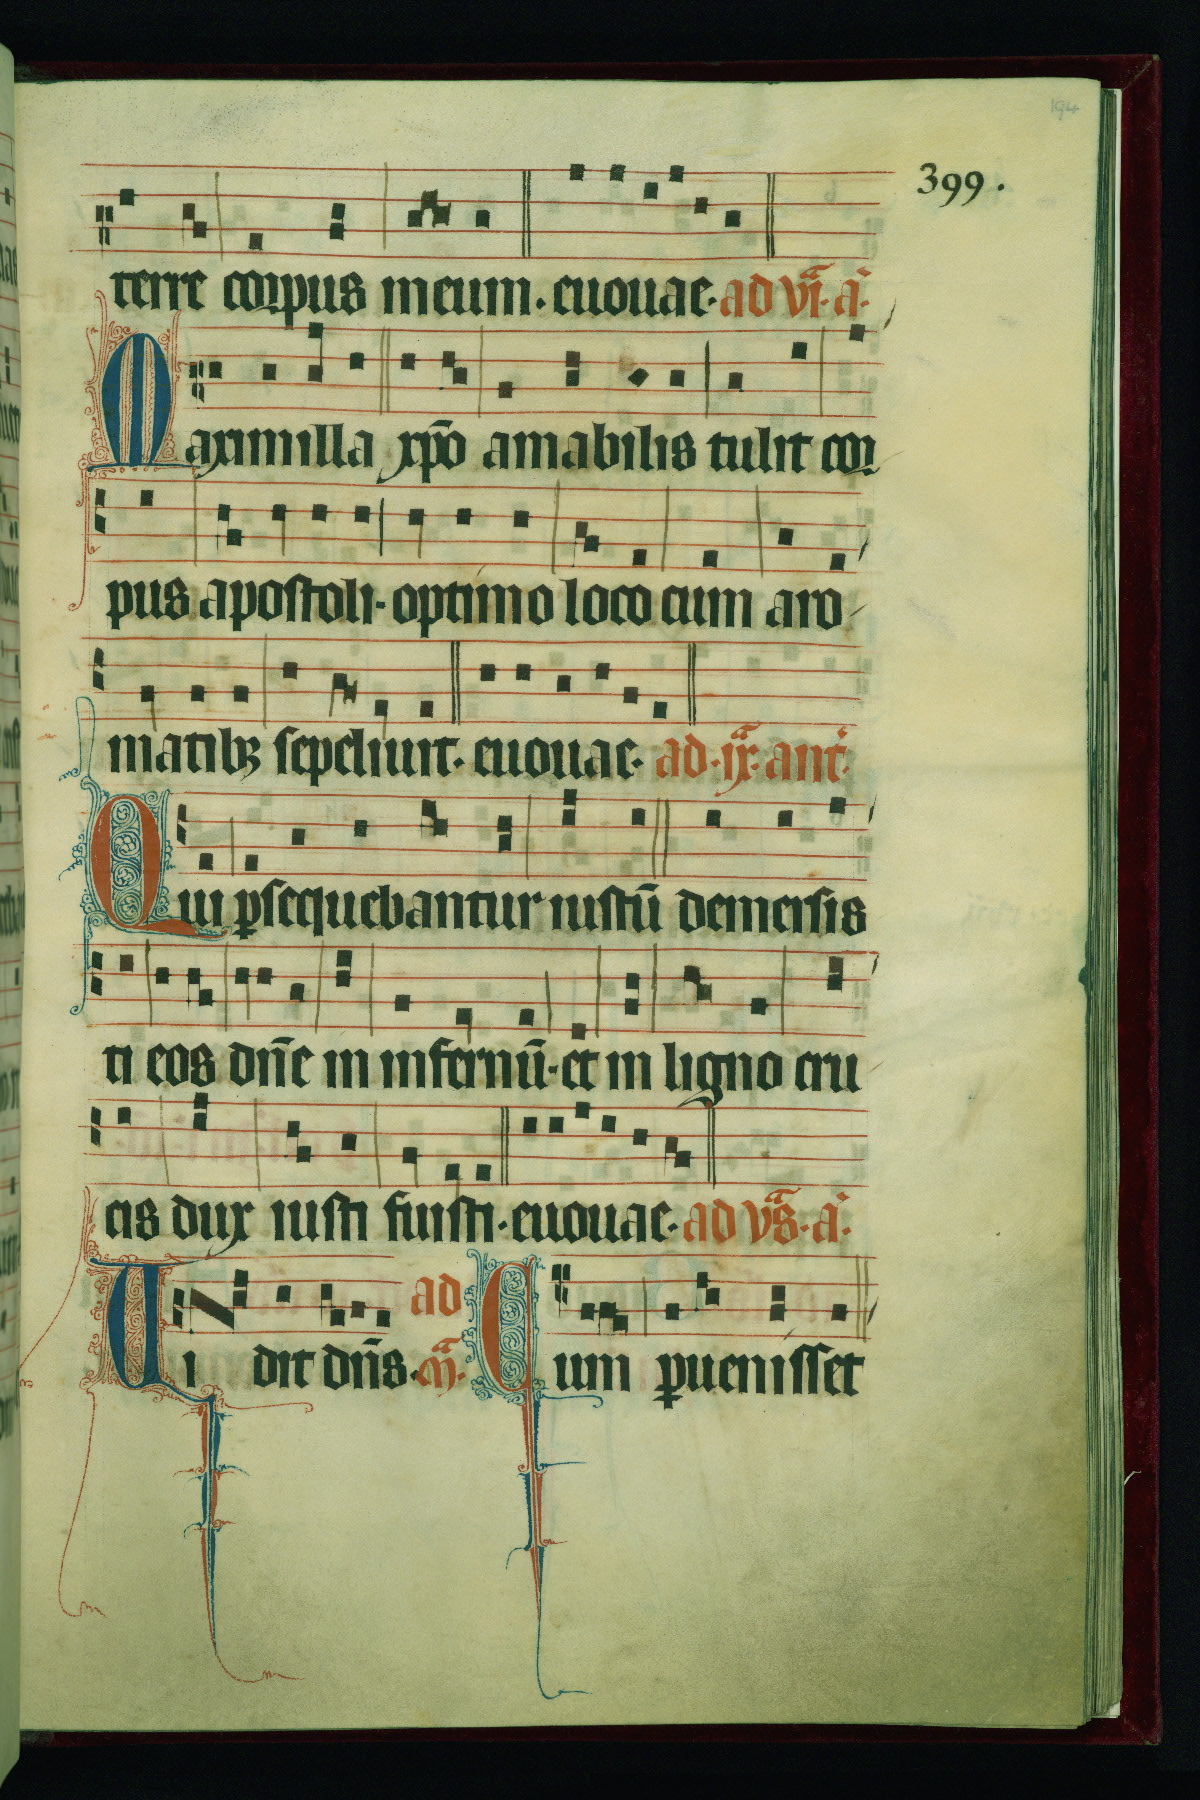 194
399.
terre corpus meum. euouae. ad vi.a a.
Maximilla xp̄o amabilis tulit cor
pus apostoli. optimo loco cum aro
matibꝫ sepeliuit. euouae. ad .ix.a ant.
Qui ꝑsequebantur iustū demersis
ti eos dn̄e in infernū. et in ligno cru
cis dux iusti fuisti. euouae. ad vs̄a. a.
Uidit dn̄s. ad m̄a. Cum ꝑuenisset